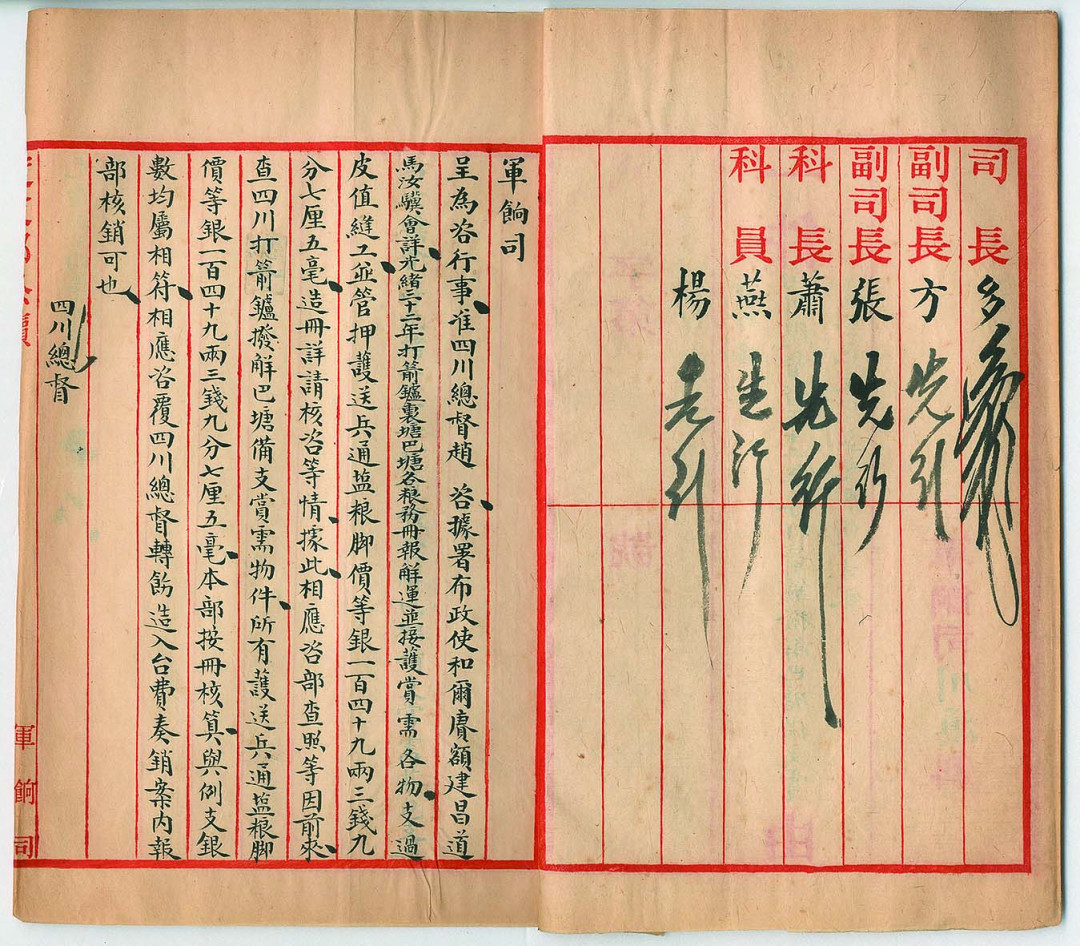 司長 多
副司長 方 先行
副司長 張 先行
科長 蕭 先行
科員 燕 先行
楊 先行
軍餉司
呈為咨行事准四川總督趙 咨據署布政使和爾賡額建昌道
馬汝驥會詳光緒三十二年打箭鑪裏塘巴塘各粮務冊報解運並接護賞需各物支過
皮值縫工並管押護送兵通盐粮脚價等銀一百四十九兩三錢九
分七厘五毫造冊詳請核咨等情據此相應咨部查照等因前來
查四川打箭鑪撥解巴塘備支賞需物件所有護送兵通盐粮脚
價等銀一百四十九兩三錢九分七厘五毫本部按冊核算與例支銀
數均屬相符相應咨覆四川總督轉飭造入台費奏銷案內報
部核銷可也
四川總督
軍餉司